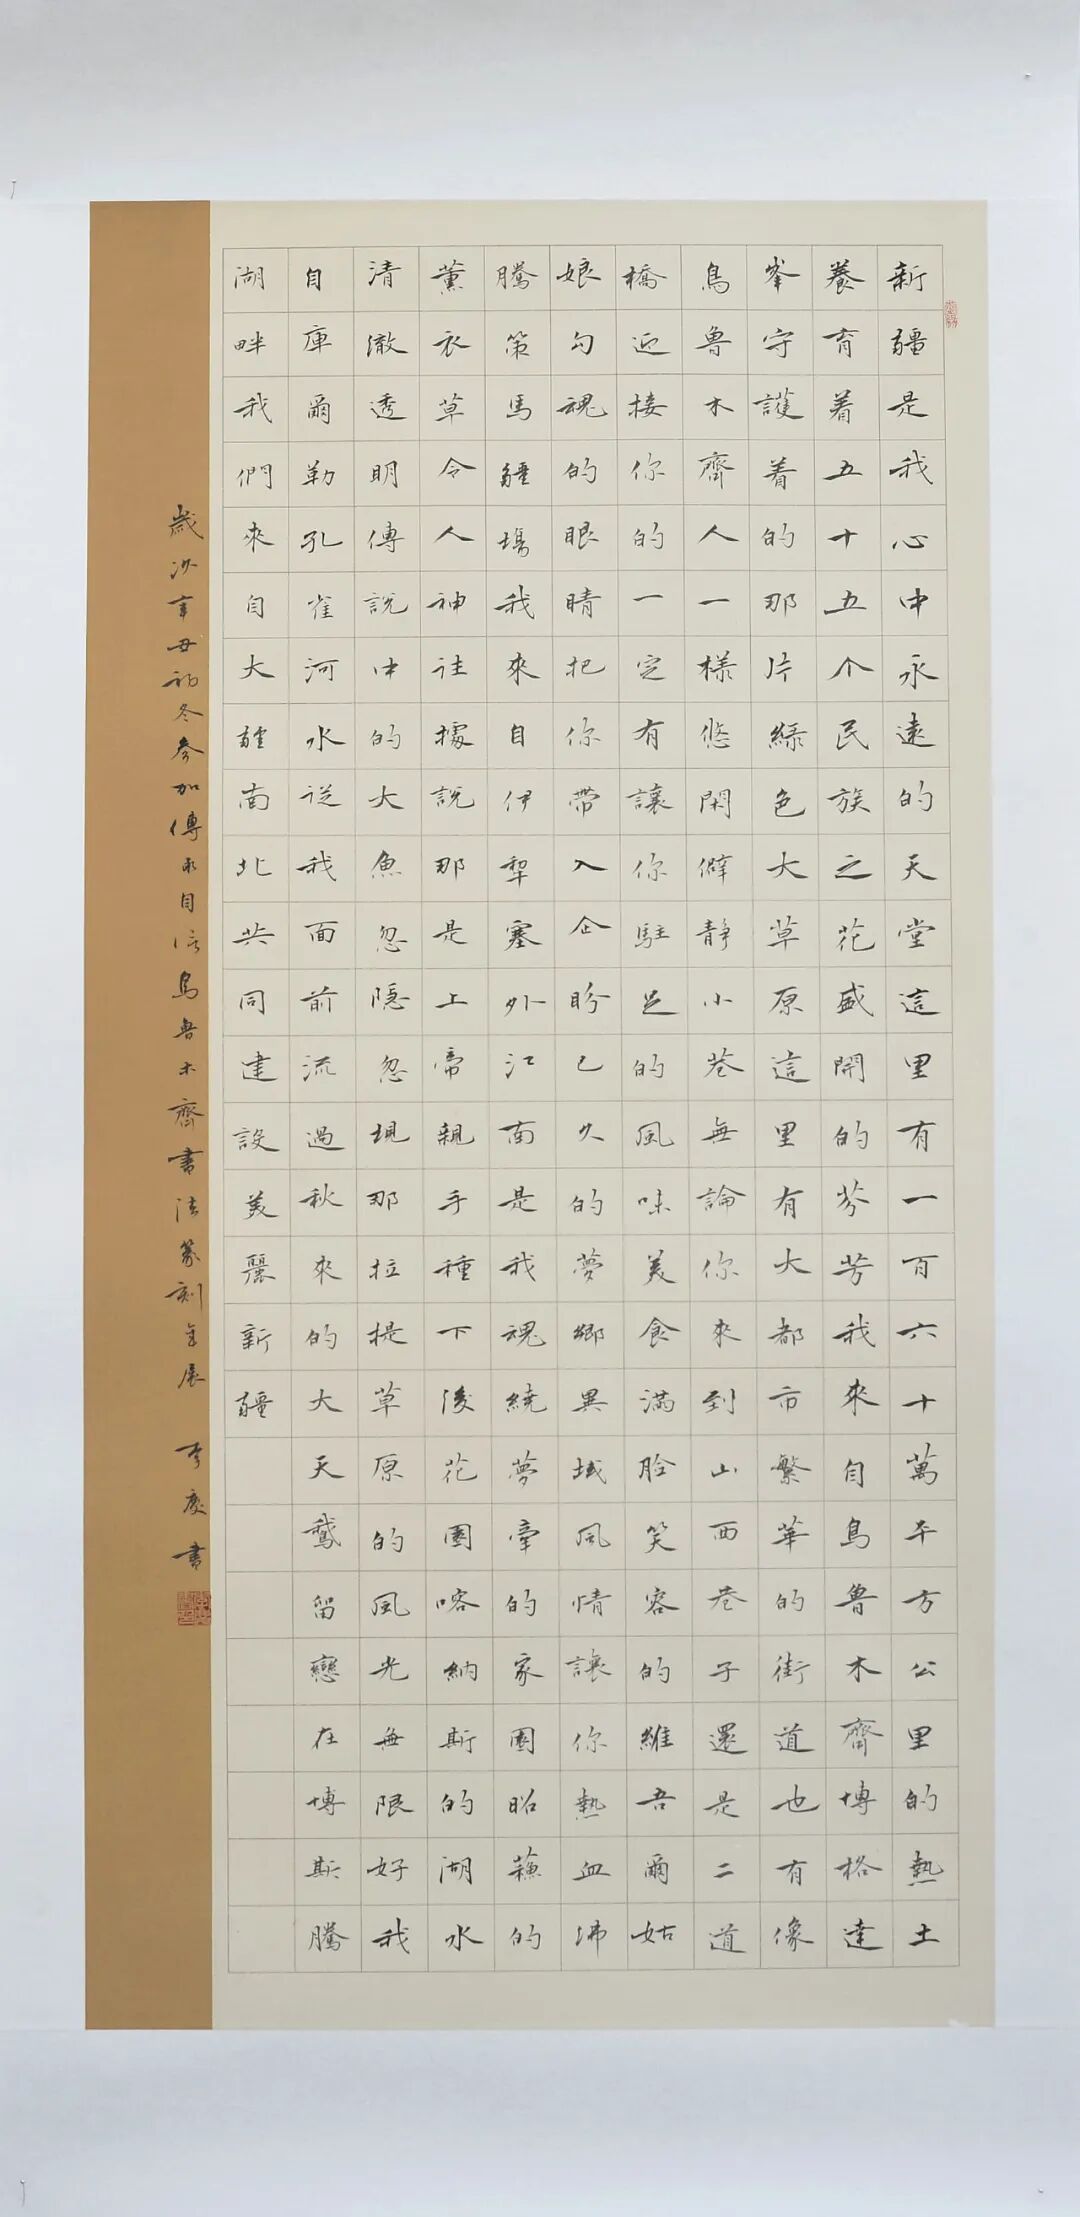 新疆是我心中永遠的天堂這里有一百六十萬平方公里的熱土
養育着五十五个民族之花盛開的芬芳我來自烏魯木齊博格達
峯守護着的那片綠色大草原這里有大都市繁華的街道也有像
烏魯木齊人一樣悠閑僻静小巷無論你來到山西巷子還是二道
橋迎接你的一定有讓你駐足的風味美食滿臉笑容的維吾爾姑
娘勾魂的眼睛把你帶入企盼已久的夢鄉異域風情讓你熱血沸
騰策馬疆場我來自伊犁塞外江南是我魂繞夢牽的家園昭蘇的
薰衣草令人神往據說那是上帝親手種下後花園喀納斯的湖水
清澈透明傳説中的大魚忽隱忽現那拉提草原的風光無限好我
自庫爾勒孔雀河水從我面前流過秋來的大天鵝留戀在博斯騰
湖畔我們來自大疆南北共同建設美麗新疆
歲次辛丑初冬參加傳承自信烏魯木齊書法篆刻全展 李慶書